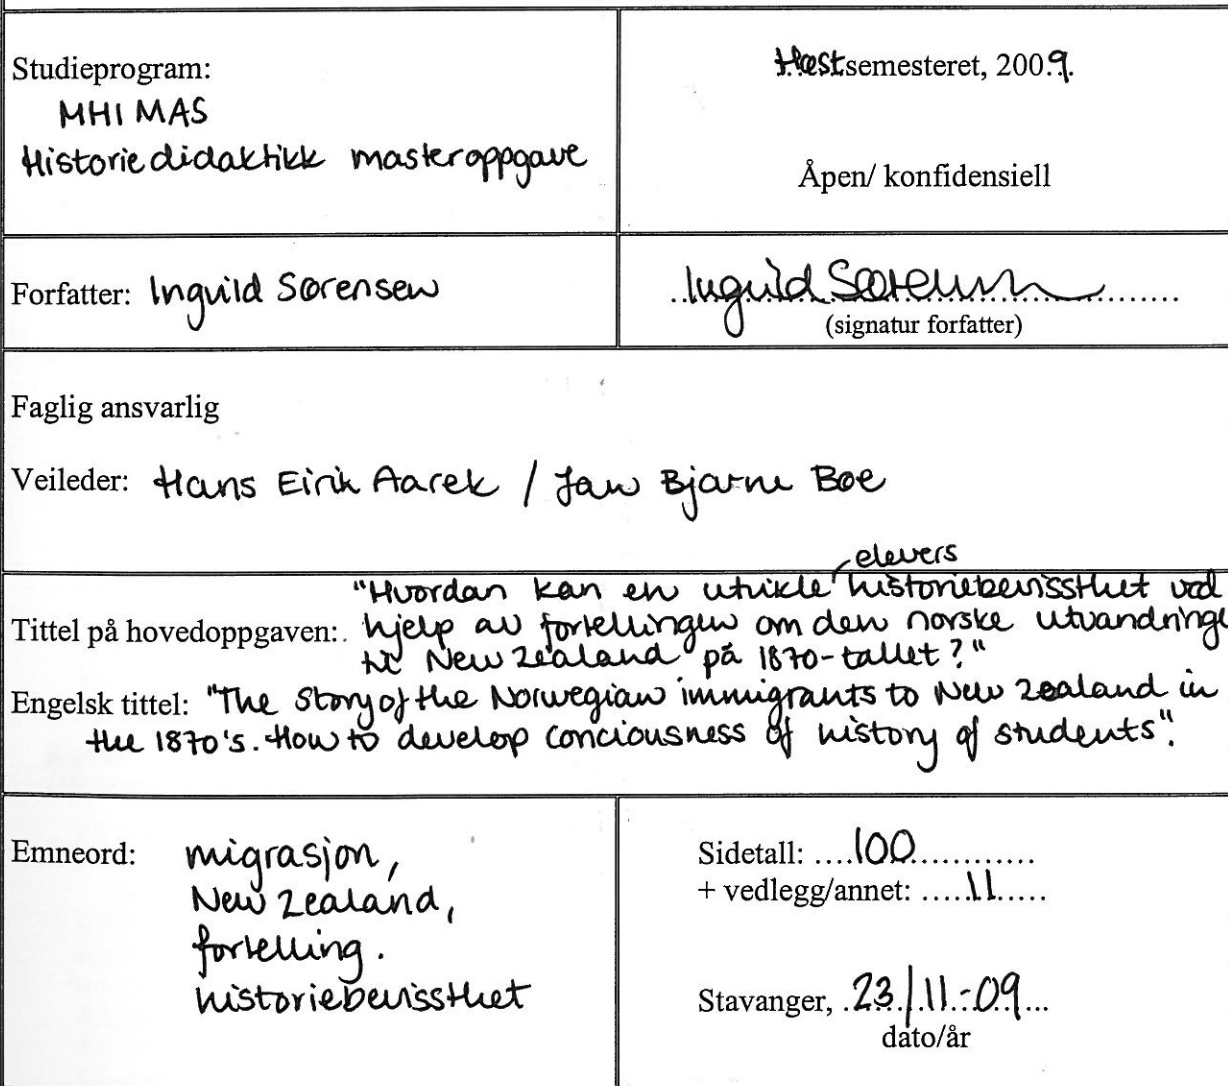 Studieprogram:
MHIMAS
Historiedidaktikk masteroppgave
Høstsemesteret, 2009.
Åpen/ konfidensiell
Forfatter: Ingvild Sørensen
Ingvild Sørensen
(signatur forfatter)
Faglig ansvarlig
Veileder: Hans Eirik Aarek / Jan Bjarne Bøe
elevers
"Hvordan kan en utvikle historiebevissthet ved
Tittel på hovedoppgaven: hjelp av fortellingen om den norske utvandringe
til New Zealand på 1870-tallet?"
Engelsk tittel: "The Story of the Norwegian immigrants to New Zealand in
the 1870's. How to develop conciousness of history of students".
Emneord: migrasjon,
New Zealand,
fortelling.
historiebevissthet
Sidetall: ....100............
+ vedlegg/annet: .....11.....
Stavanger, .23/11.-09...
dato/år